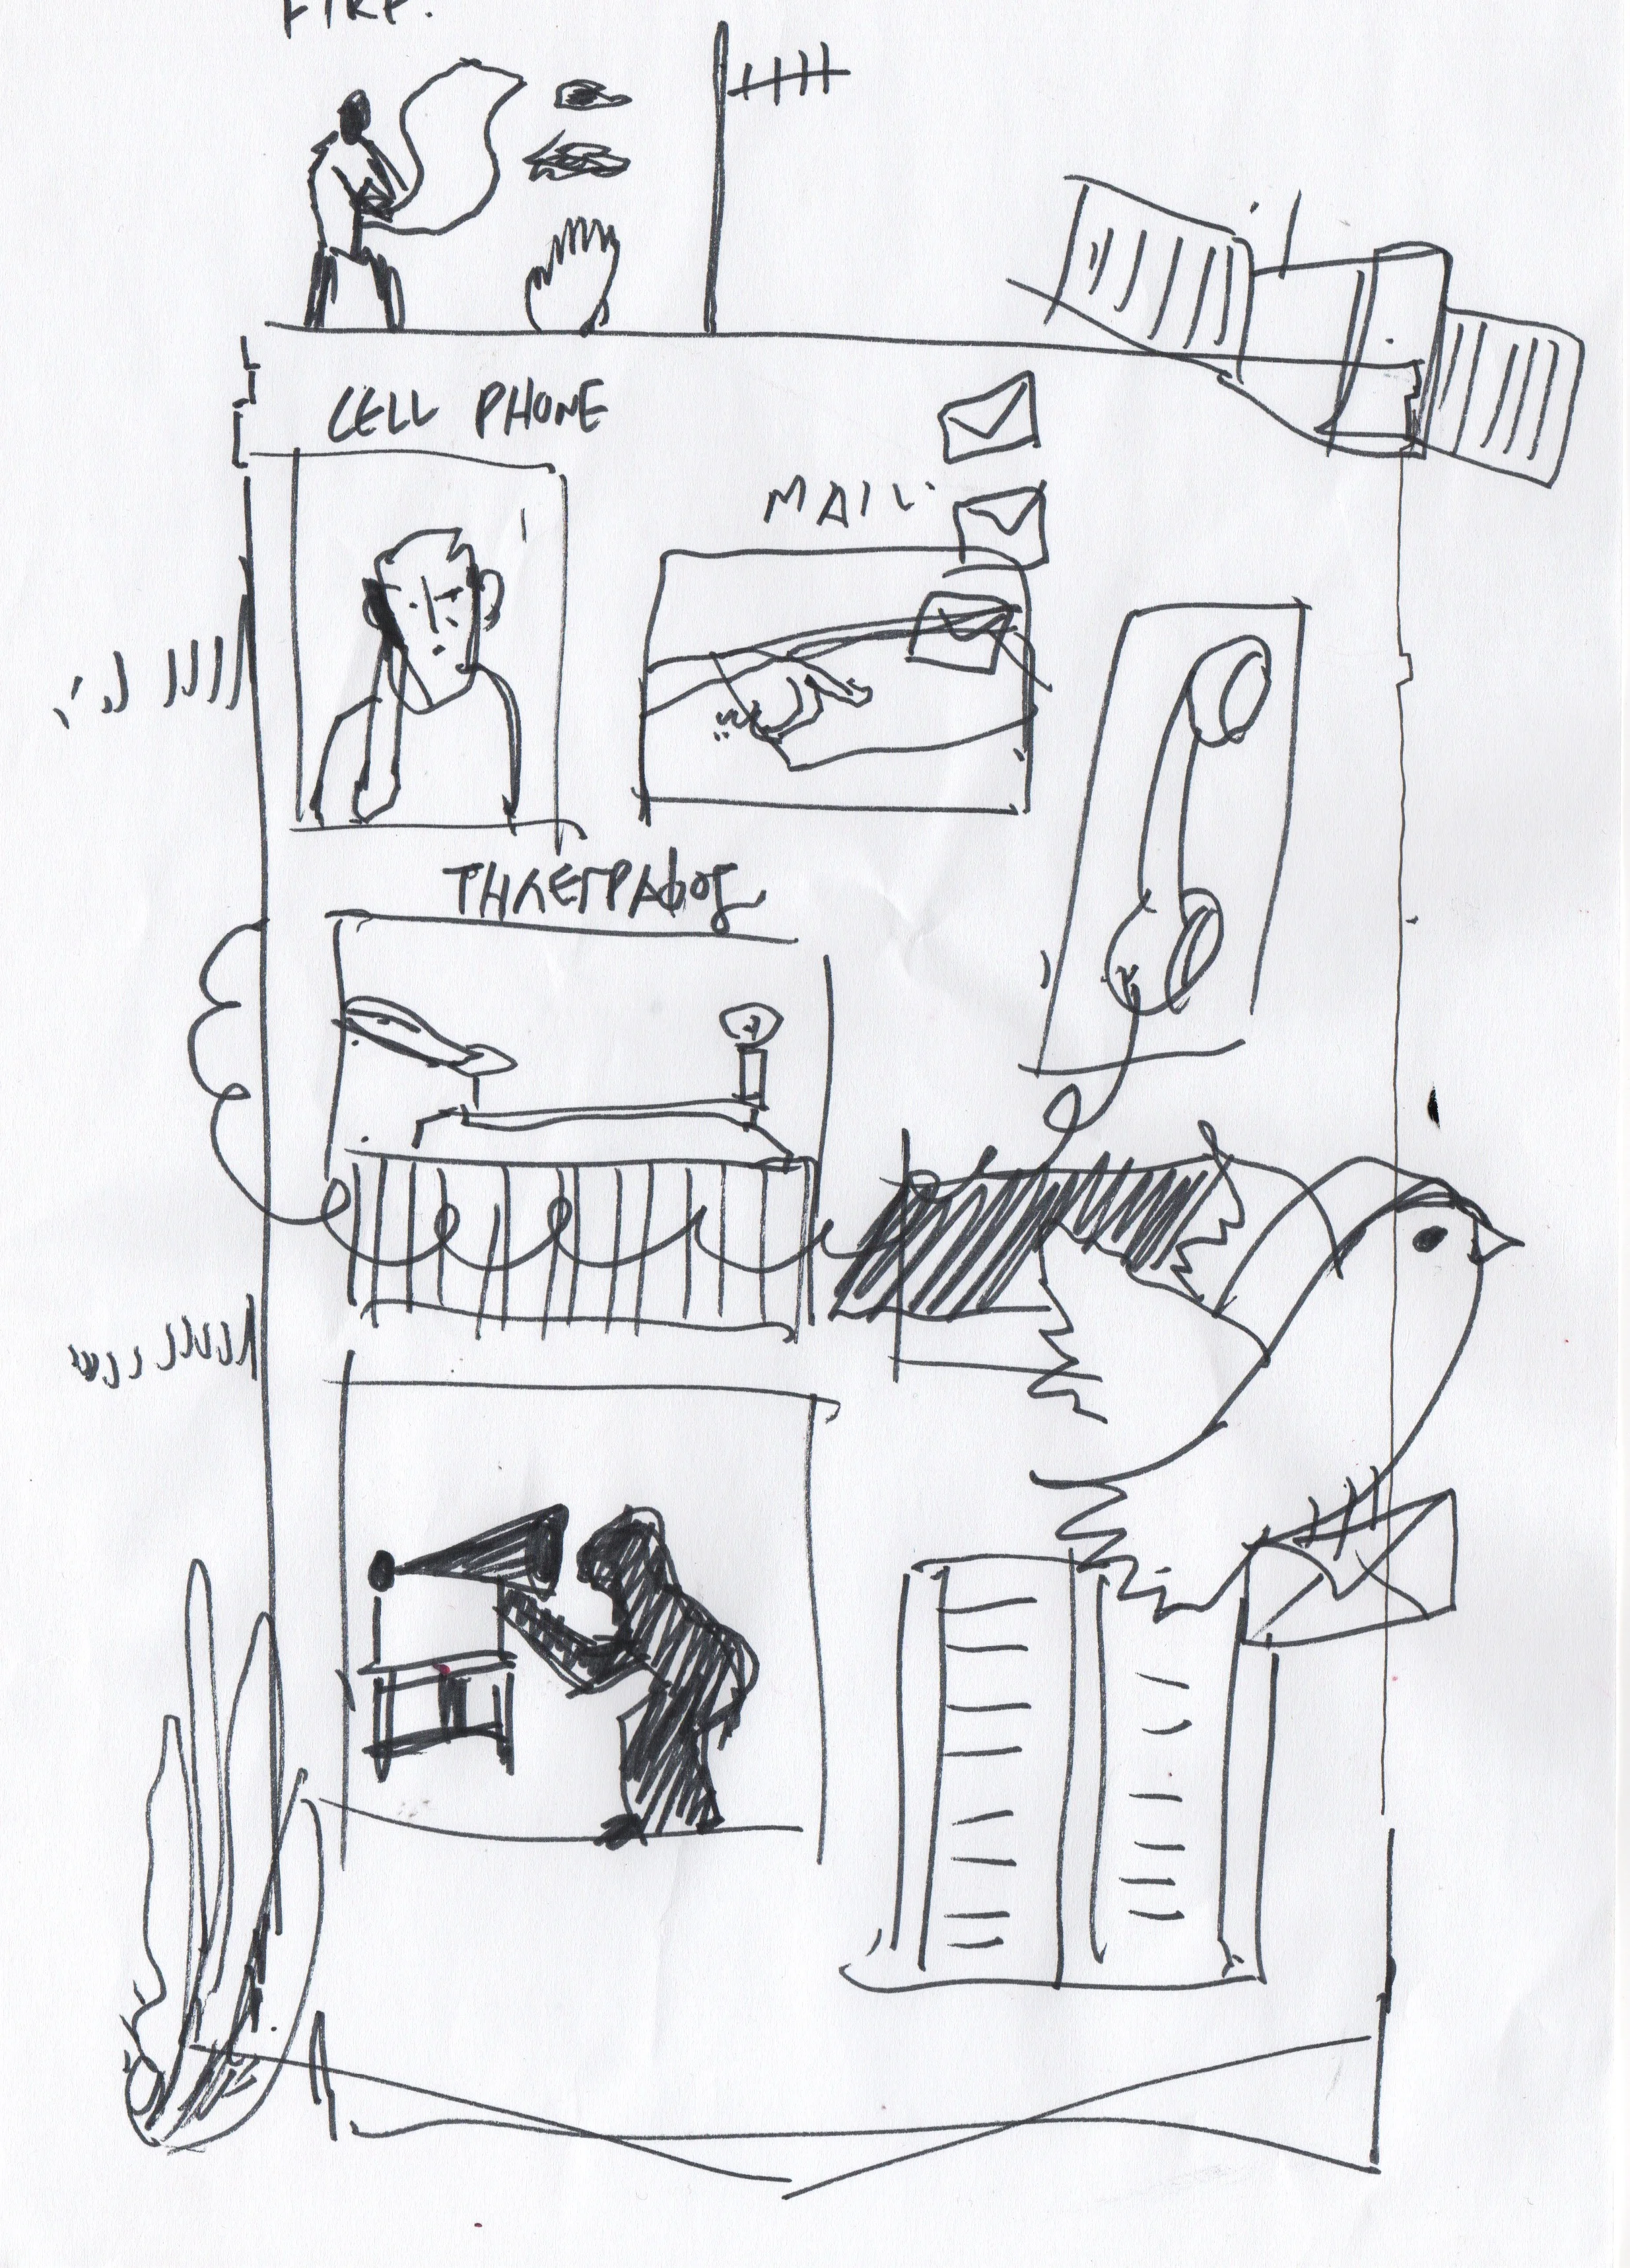 FIRE.
CELL PHONE
MAIL
ΤΗΛΕΓΡΑΦΟΣ